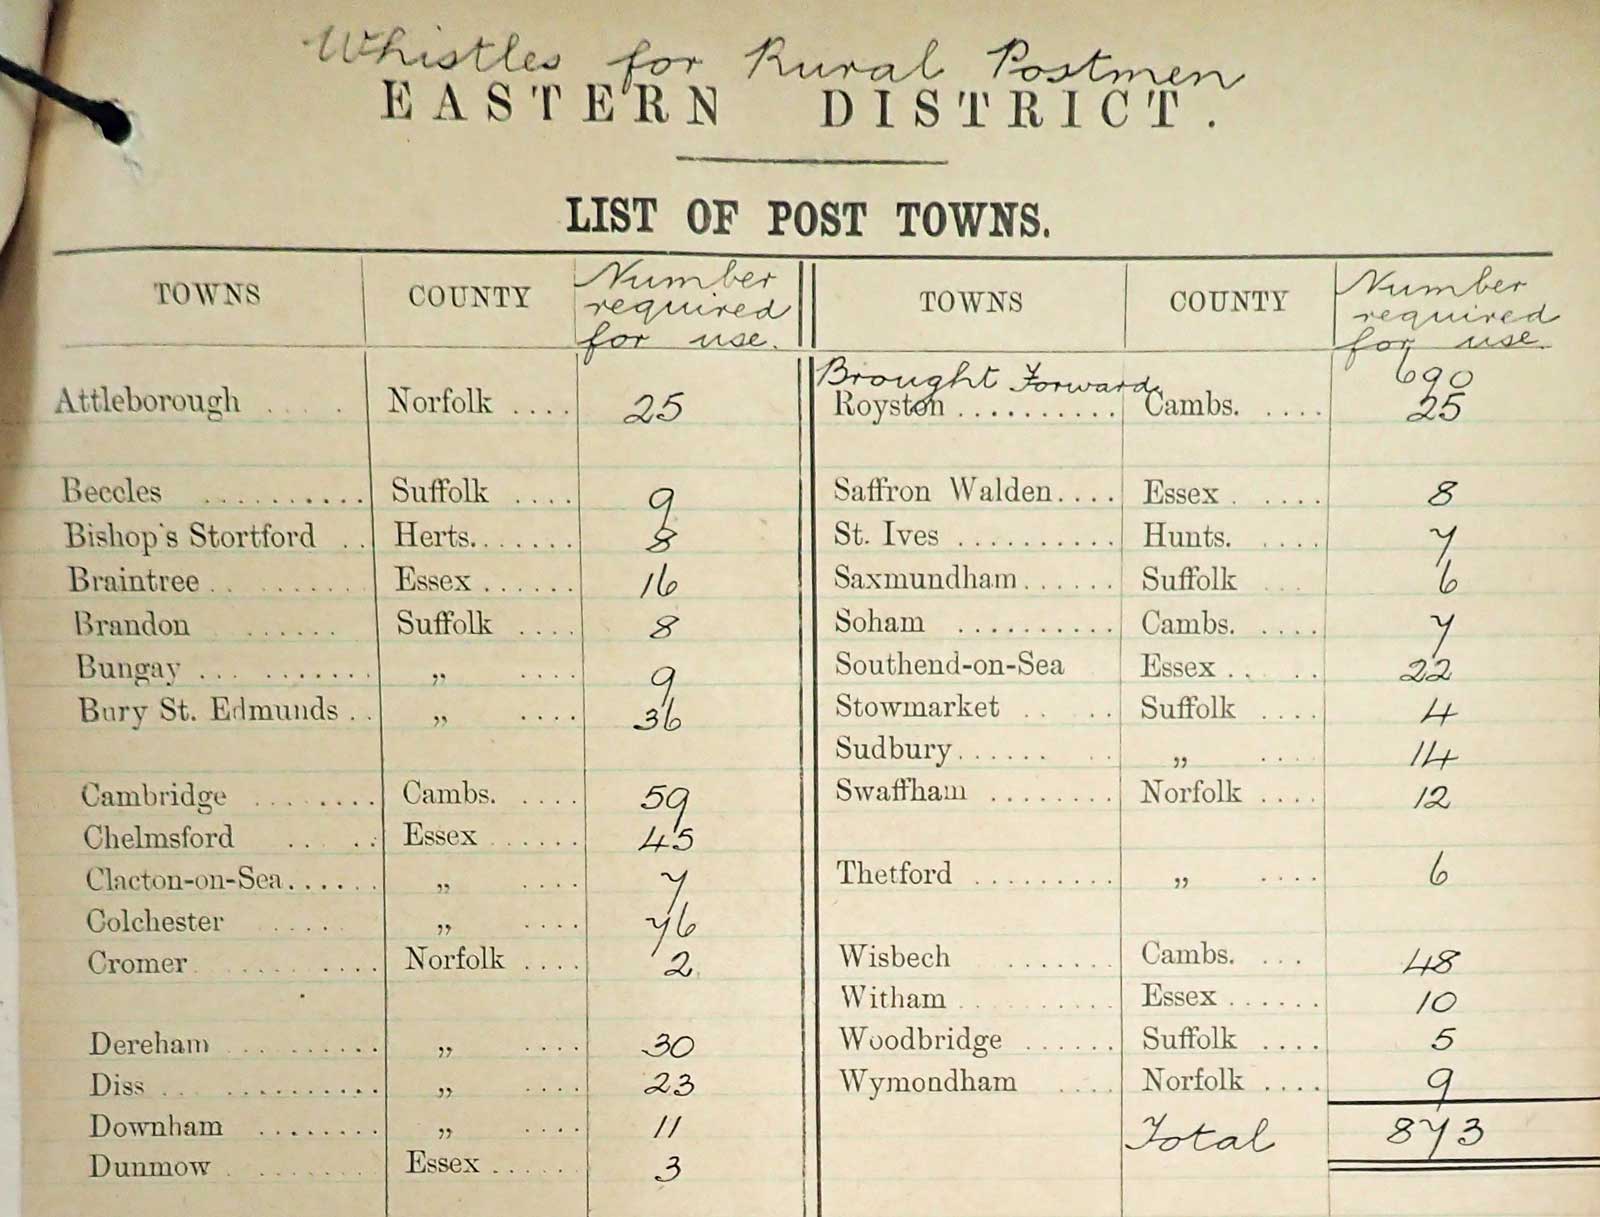 Whistles for Rural Postmen
EASTERN DISTRICT.
LIST OF POST TOWNS.
TOWNS COUNTY Number required for use.
Attleborough .... Norfolk .... 25
Beccles .......... Suffolk .... 9
Bishop's Stortford .. Herts. ...... 8
Braintree ........ Essex ...... 16
Brandon ...... Suffolk .... 8
Bungay .......... „ .... 9
Bury St. Edmunds .. „ .... 36
Cambridge ....... Cambs. .... 59
Chelmsford ...... Essex ...... 45
Clacton-on-Sea...... „ .... 7
Colchester ..... „ .... 76
Cromer ..... Norfolk .... 2
Dereham ......... „ .... 30
Diss ........... „ .... 23
Downham ........ „ .... 11
Dunmow ........ Essex ...... 3
TOWNS COUNTY Number required for use.
Brought Forward 690
Royston .......... Cambs. .... 25
Saffron Walden.... Essex ..... 8
St. Ives .......... Hunts. .... 7
Saxmundham...... Suffolk ... 6
Soham .......... Cambs. .... 7
Southend-on-Sea Essex .... 22
Stowmarket .... Suffolk .... 4
Sudbury........ „ .... 14
Swaffham ........ Norfolk .... 12
Thetford ......... „ .... 6
Wisbech ....... Cambs. .... 48
Witham .......... Essex ...... 10
Woodbridge ...... Suffolk .... 5
Wymondham .... Norfolk .... 9
Total 873